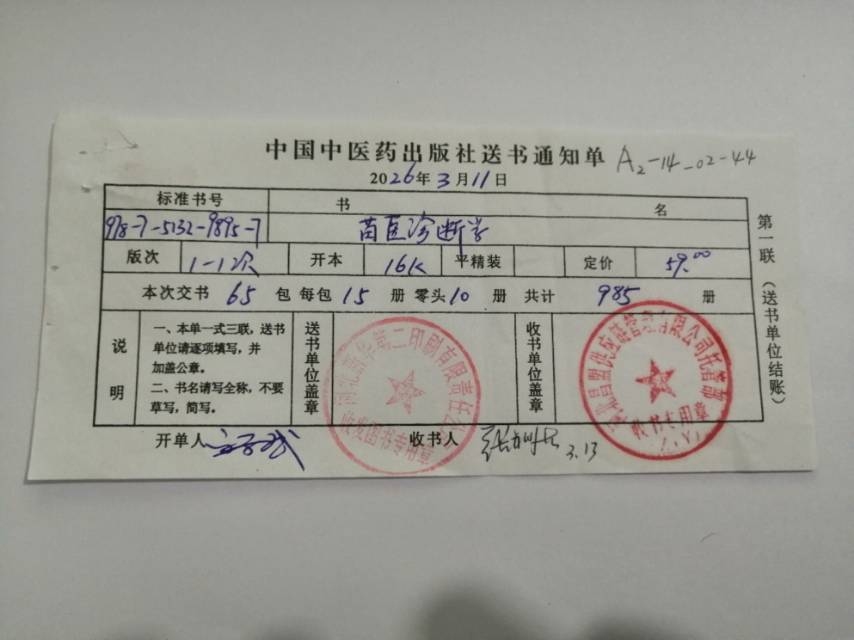 中国中医药出版社送书通知单 A2-14-02-44
2026年3月11日
标准书号 书 名
978-7-5132-9895-7 苗医诊断学
版次 1-1次 开本 16K 平精装 定价 59.00
本次交书 65 包 每包 15 册 零头 10 册 共计 985 册
说明
一、本单一式三联，送书
单位请逐项填写，并
加盖公章。
二、书名请写全称，不要
草写，简写。
送书单位盖章
收书单位盖章
收发图书专用章
收书专用章
第一联（送书单位结账）
开单人 收书人 3.13